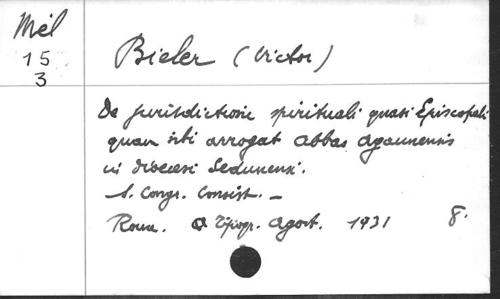 Mél
15
3
Bieler (Victor)
De jurisdictione spirituali quasi Episcopali
quam sibi arrogat Abbas Agaunensis
in diocesi Sedunensi.
S. Congr. Consist. —
Roma. Tipogr. Agost. 1931 8.